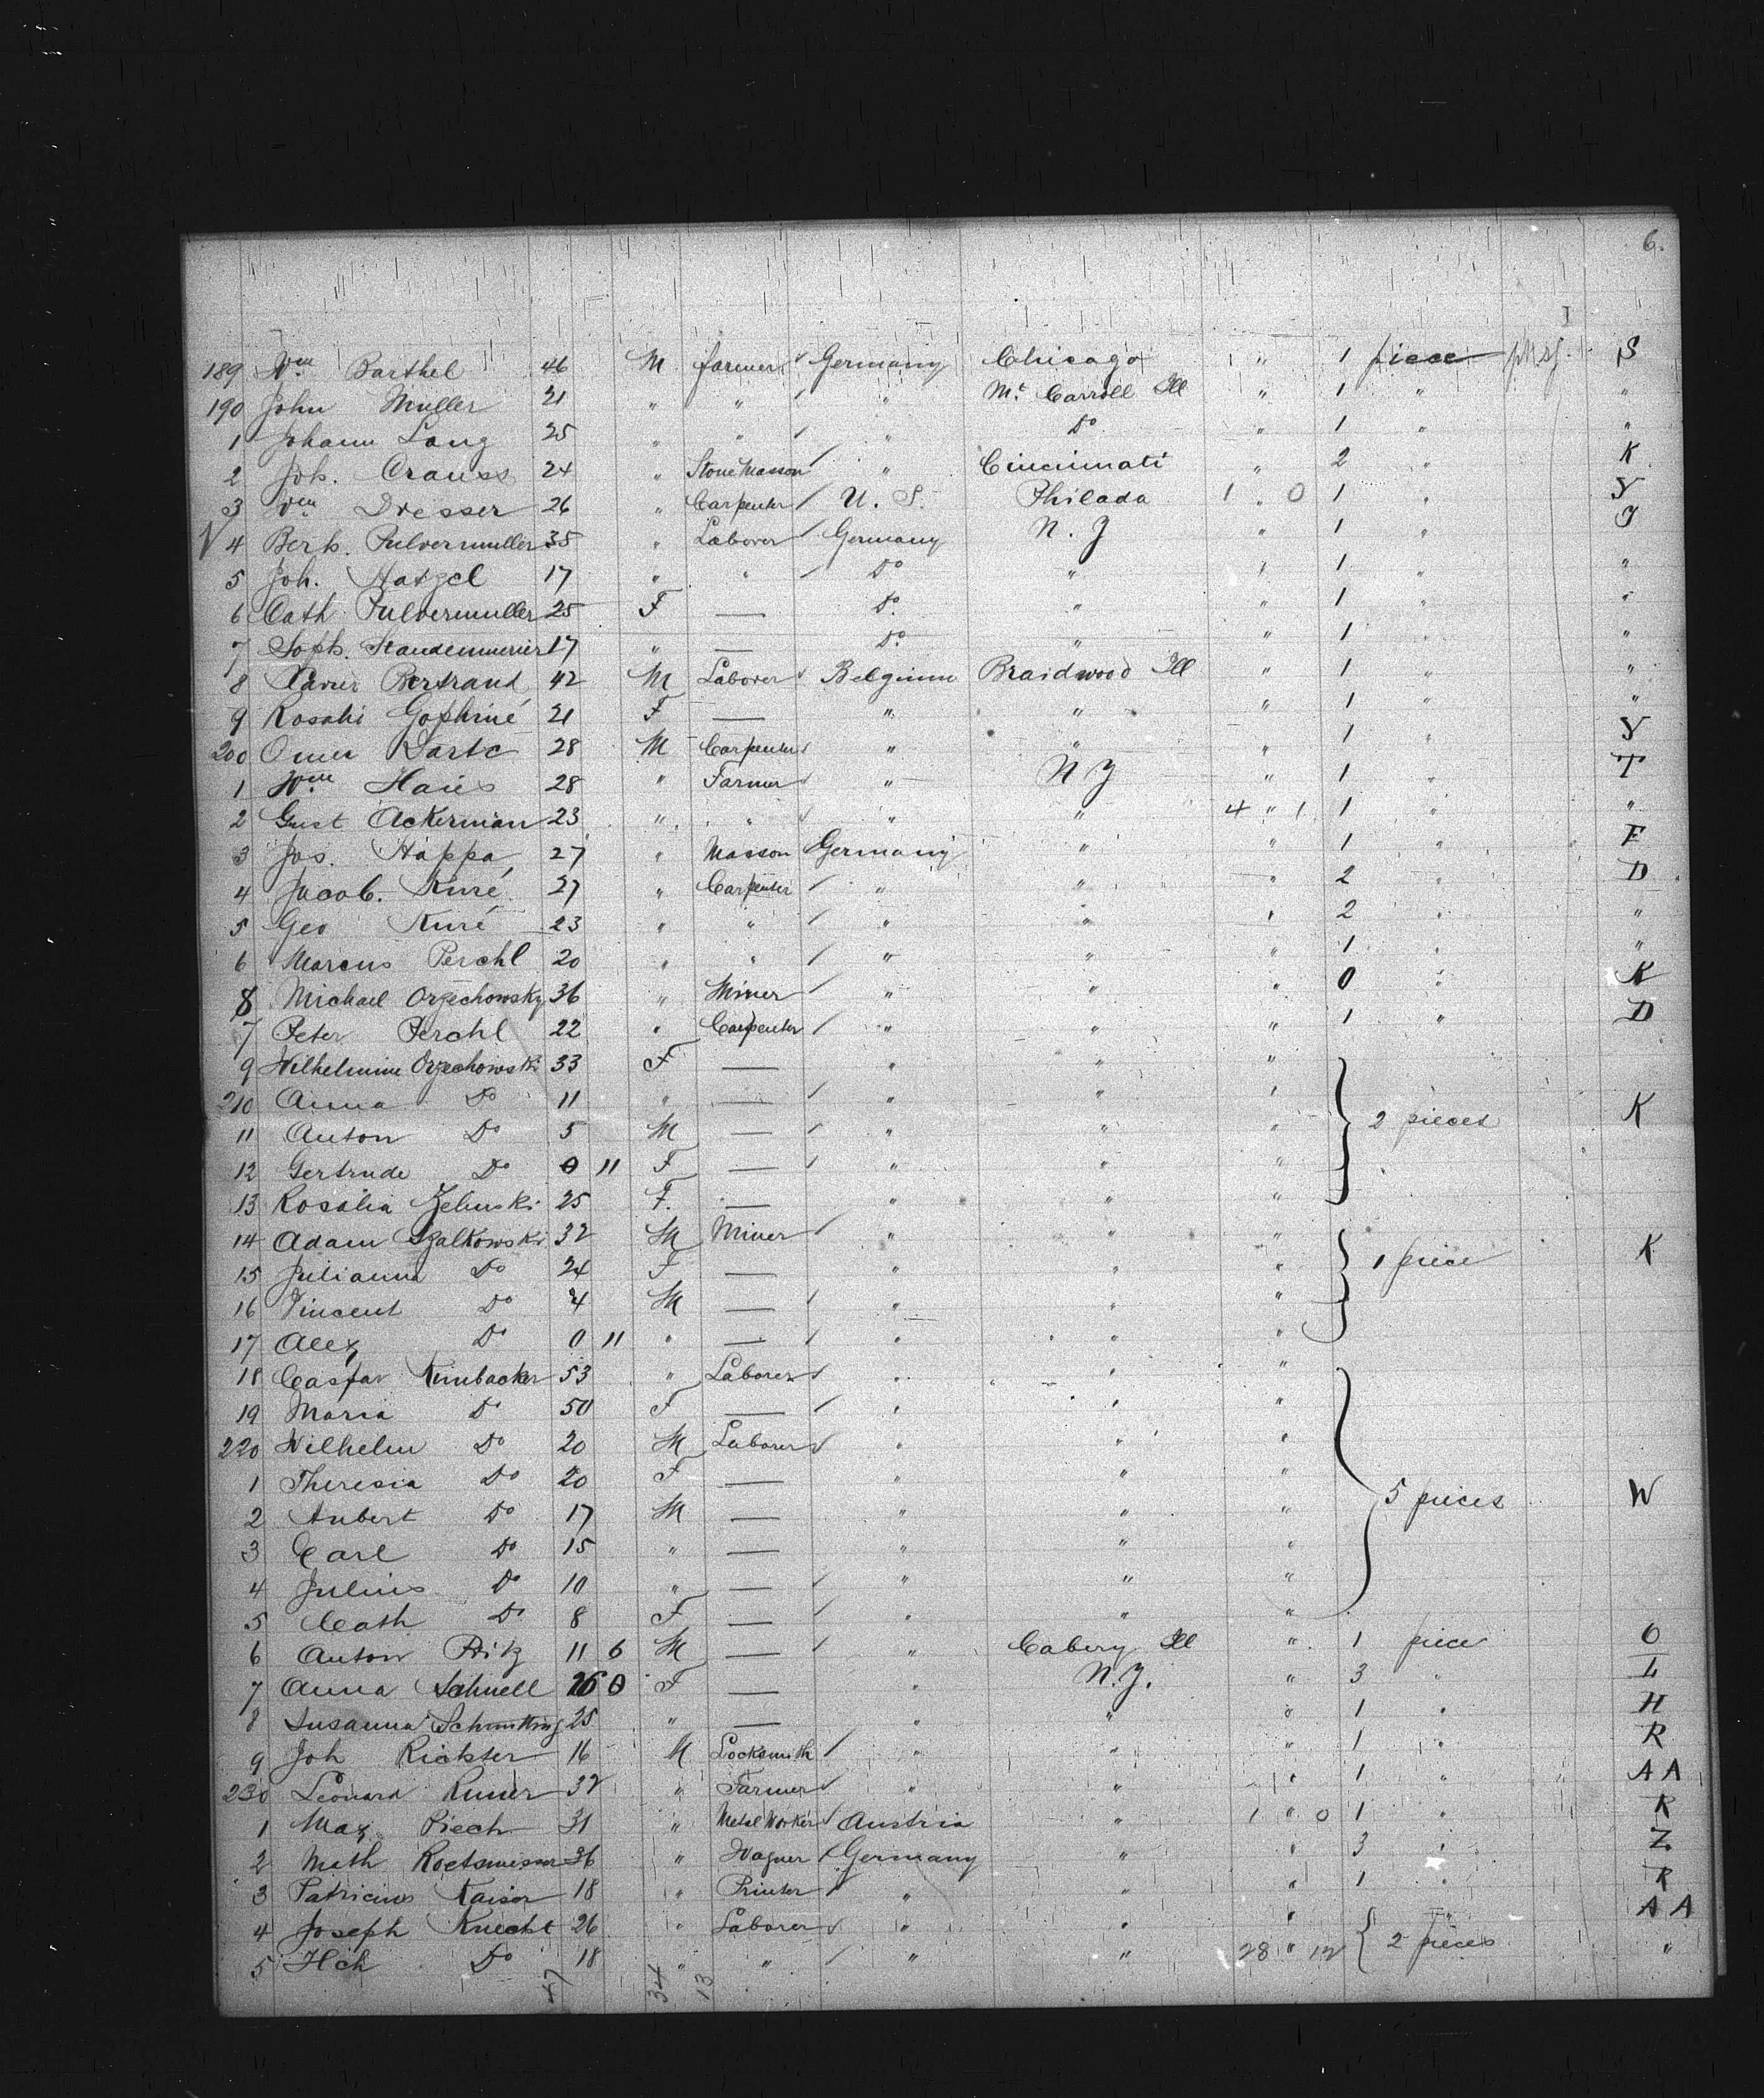 6.
189 Wm Barthel 46 M farmer Germany Chicago " 1 piece S
190 John Muller 21 " " " Mt Carroll Ill " 1 " "
1 Johann Lang 25 " " " Do " 1 " "
2 Joh. Crauss 24 " Stone Masson " Cincinnati " 2 " K
3 Wm Dresser 26 " Carpenter U. S. Philada 1 " 0 1 " Y
4 Berh. Pulvermuller 35 " Laborer Germany N. Y " 1 " J
5 Joh. Hatzel 17 " " Do " " 1 " "
6 Cath Pulvermuller 25 F — Do " " 1 " "
7 Soph. 17 " — Do " " 1 " "
8 Bertrand 42 M Laborer Belgium Braidwood Ill " 1 " "
9 Rosalie Gophiné 21 F — " " " 1 " "
200 Omer 28 M Carpenter " " " 1 " Y
1 Wm Hains 28 " Farmer " N Y " 1 " T
2 Gust Ackerman 23 " " " " 4 " 1 1 " "
3 Jos. Happa 27 " Masson Germany " " 1 " F
4 Jacob. Kuré 27 " Carpenter " " " 2 " D
5 Geo Kuré 23 " " " " " 2 " "
6 Marcus Perchl 20 " " " " " 1 " "
8 Michael Orzechowsky 36 " Miner " " " 0 " K
7 Peter Perchl 22 " Carpenter " " " 1 " D
9 Wilhelmine Orzechowski 33 F — " " "
210 Anna Do 11 " — " " "
11 Anton Do 5 M — " " " 2 pieces K
12 Gertrude Do 0 11 F — " " "
13 Rosalia Zelinski 25 F. — " " "
14 Adam Szalkowski 32 M Miner " " "
15 Julianna Do 24 F — " " " 1 piece K
16 Vincent Do 4 M — " " "
17 Alex Do 0 11 " — " " "
18 Caspar Kimbacker 53 " Laborer " " "
19 Maria Do 50 F — " " "
220 Wilhelm Do 20 M Laborer " " "
1 Theresia Do 20 F — " " "
2 Hubert Do 17 M — " " " 5 pieces W
3 Carl Do 15 " — " " "
4 Julius Do 10 " — " " "
5 Cath Do 8 F — " " "
6 Anton Pritz 11 6 M — " Cabery Ill " 1 piece O
7 Anna Schnell 26 0 F — " N. Y. " 3 " L
8 Susanna 25 " — " " " 1 " H
9 Joh Richter 16 M Locksmith " " " 1 " R
230 Leonard 32 " Farmer " " " 1 " A A
1 Max Piech 31 " Metal Worker Austria " 1 " 0 1 " R
2 Math 36 " Wagner Germany " " 3 " Z
3 Patricius Kaiser 18 " Printer " " " 1 " R
4 Joseph Knecht 26 " Laborer " " " " A A
5 Hch Do 18 " " " " 28 " 12 2 pieces "
47 34 13